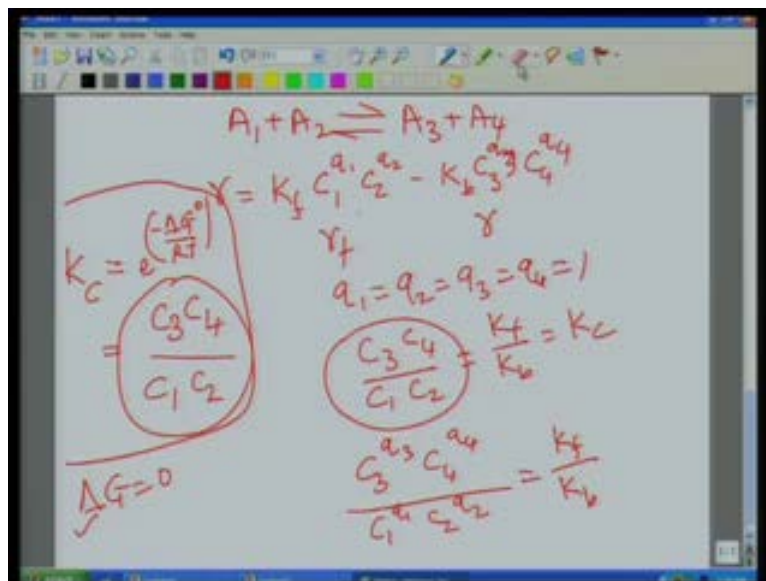 A₁ + A₂ ⇌ A₃ + A₄
r = K_f C₁^{a₁} C₂^{a₂} - K_b C₃^{a₃} C₄^{a₄}
r_f r
K_C = e^{(-ΔG⁰/RT)}
= C₃C₄ / C₁C₂
ΔG=0
a₁=a₂=a₃=a₄=1
C₃C₄ / C₁C₂ = K_f / K_b = K_C
C₃^{a₃} C₄^{a₄} / C₁^{a₁} C₂^{a₂} = K_f / K_b